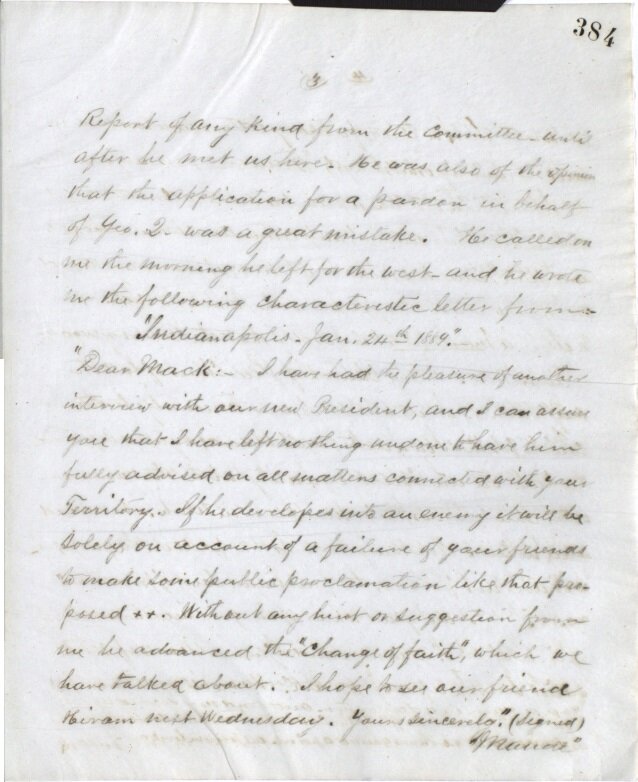 384
3
Report of any kind from the Committee - until
after he met us here. He was also of the opinion
that the application for a pardon in behalf
of Geo. Q. was a great mistake. He called on
me the morning he left for the west - and he wrote
me the following characteristic letter from:-
"Indianapolis - Jan. 24th 1889."
"Dear Mack:- I have had the pleasure of another
interview with our new President, and I can assure
you that I have left nothing undone to have him
fully advised on all matters connected with your
Territory. If he developes into an enemy it will be
solely on account of a failure of your friends
to make some public proclamation like that pro-
posed ++. Without any hint or suggestion from
me he advanced the "Change of faith", which we
have talked about. I hope to see our friend
Hiram next Wednesday. Yours sincerely." (Signed)